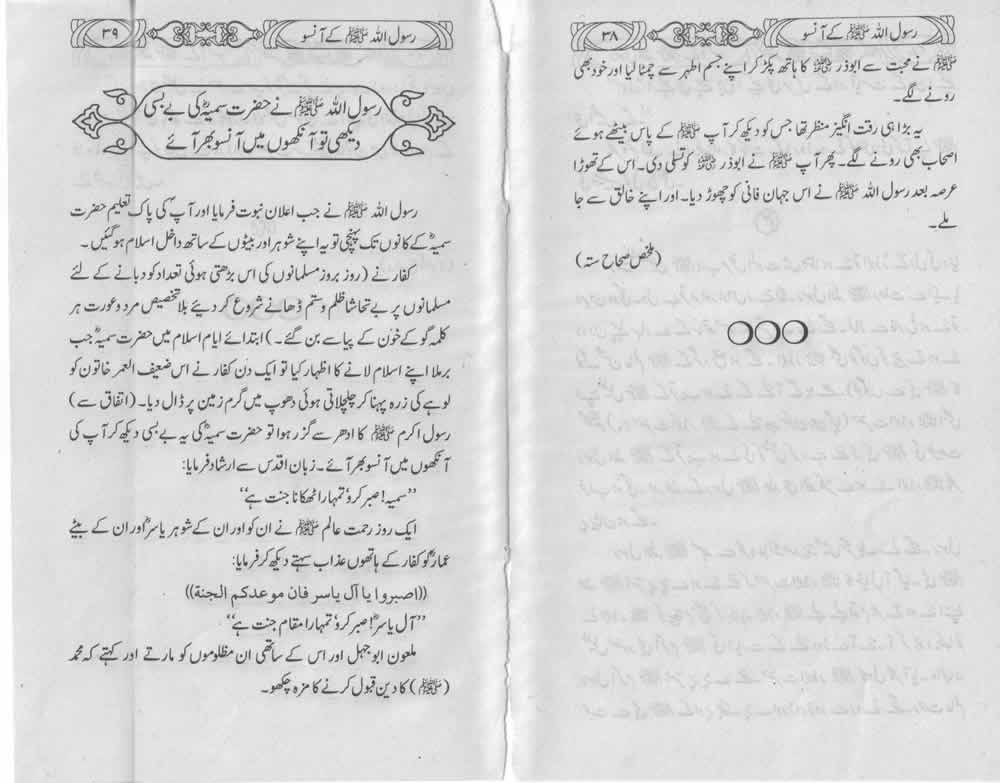 رسول اللہ ﷺ کے آنسو
۳۸
ﷺ نے محبت سے ابوذر ﷺ کا ہاتھ پکڑ کر اپنے جسم اطہر سے چمٹا لیا اور خود بھی
رونے لگے۔
یہ بڑا ہی رقت انگیز منظر تھا جس کو دیکھ کر آپ ﷺ کے پاس بیٹھے ہوئے
اصحاب بھی رونے لگے۔ پھر آپ ﷺ نے ابوذر ﷺ کو تسلی دی۔ اس کے تھوڑا
عرصہ بعد رسول اللہ ﷺ نے اس جہان فانی کو چھوڑ دیا۔ اور اپنے خالق سے جا
ملے۔
(ملخص صحاح ستہ)
رسول اللہ ﷺ کے آنسو
۳۹
رسول اللہ ﷺ نے حضرت سمیہؓ کی بے بسی
دیکھی تو آنکھوں میں آنسو بھر آئے
رسول اللہ ﷺ نے جب اعلان نبوت فرمایا اور آپ کی پاک تعلیم حضرت
سمیہؓ کے کانوں تک پہنچی تو یہ اپنے شوہر اور بیٹوں کے ساتھ داخل اسلام ہوگئیں۔
کفار نے (روز بروز مسلمانوں کی اس بڑھتی ہوئی تعداد کو دبانے کے لئے
مسلمانوں پر بے تحاشا ظلم وستم ڈھانے شروع کر دیئے بلا تخصیص مرد وعورت ہر
کلمہ گو کے خون کے پیاسے بن گئے۔) ابتدائے ایام اسلام میں حضرت سمیہؓ جب
برملا اپنے اسلام لانے کا اظہار کیا تو ایک دن کفار نے اس ضعیف العمر خاتون کو
لوہے کی زرہ پہنا کر چلچلاتی ہوئی دھوپ میں گرم زمین پر ڈال دیا۔ (اتفاق سے)
رسول اکرم ﷺ کا ادھر سے گزر ہوا تو حضرت سمیہؓ کی یہ بے بسی دیکھ کر آپ کی
آنکھوں میں آنسو بھر آئے۔ زبان اقدس سے ارشاد فرمایا:
”سمیہ! صبر کرو، تمہارا ٹھکانا جنت ہے“
ایک روز رحمت عالم ﷺ نے ان کو اور ان کے شوہر یاسرؓ اور ان کے بیٹے
عمارؓ کو کفار کے ہاتھوں عذاب سہتے دیکھ کر فرمایا:
((اصبروا یا آل یاسر فان موعدکم الجنة))
”آل یاسرؓ! صبر کرو، تمہارا مقام جنت ہے“
ملعون ابو جہل اور اس کے ساتھی ان مظلوموں کو مارتے اور کہتے کہ محمد
(ﷺ) کا دین قبول کرنے کا مزہ چکھو۔